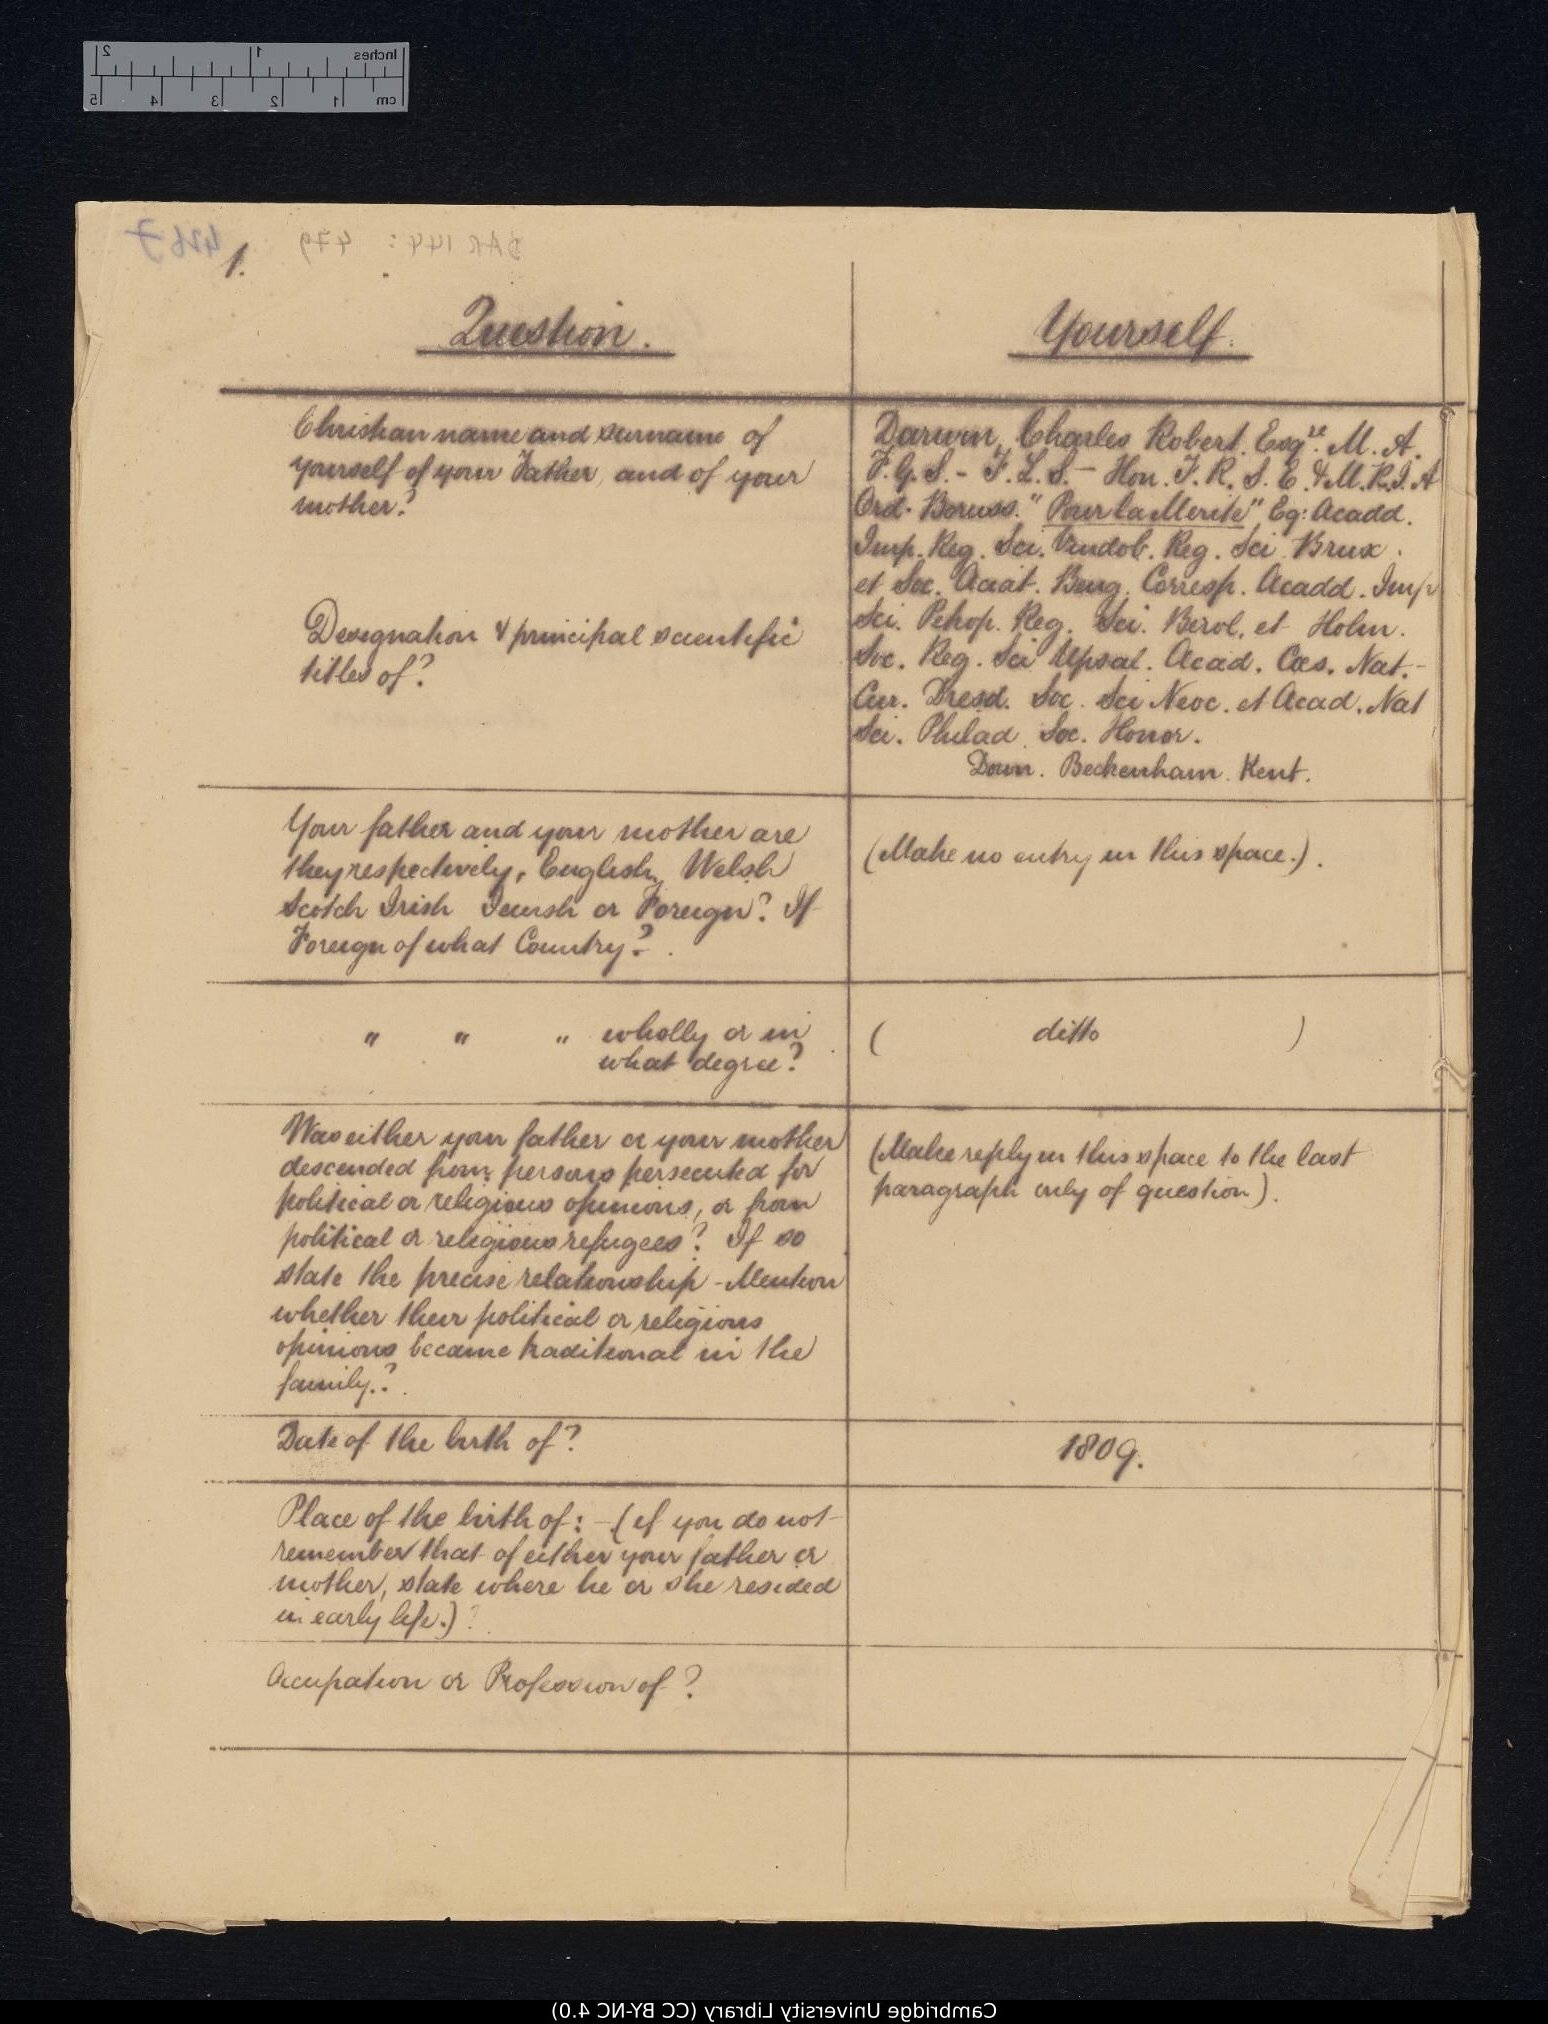 Inches 1 2
cm 1 2 3 4 5
4267
DAR 144: 479
1.
Question.
Yourself.
Christian name and surname of
yourself of your Father, and of your
mother?
Designation & principal scientific
titles of?
Darwin, Charles Robert. Esqre. M. A.
F. G. S. - F. L. S. - Hon. F. R. S. E. & M. R. I. A
Ord. Boruss. "Pour la Merite" Eq: Acadd.
Imp. Reg. Sci. Vindob. Reg. Sci Brux.
et Soc. Asiat. Beng. Corresp. Acadd. Imp
Sci. Petrop. Reg. Sci. Berol. et Holm.
Soc. Reg. Sci Upsal. Acad. Cæs. Nat.-
Cur. Dresd. Soc. Sci Neoc. et Acad. Nat
Sci. Philad. Soc. Honor.
Down. Beckenham. Kent.
Your father and your mother are
they respectively, English, Welsh
Scotch Irish Jewish or Foreign? If
Foreign of what Country?
(Make no entry in this space.).
" " " wholly or in
what degree?
( ditto )
Was either your father or your mother
descended from persons persecuted for
political or religious opinions, or from
political or religious refugees? If so
state the precise relationship - Mention
whether their political or religious
opinions became traditional in the
family?
(Make reply in this space to the last
paragraph only of question).
Date of the birth of?
1809.
Place of the birth of: - (if you do not
remember that of either your father or
mother, state where he or she resided
in early life.)?
Occupation or Profession of?
Cambridge University Library (CC BY-NC 4.0)